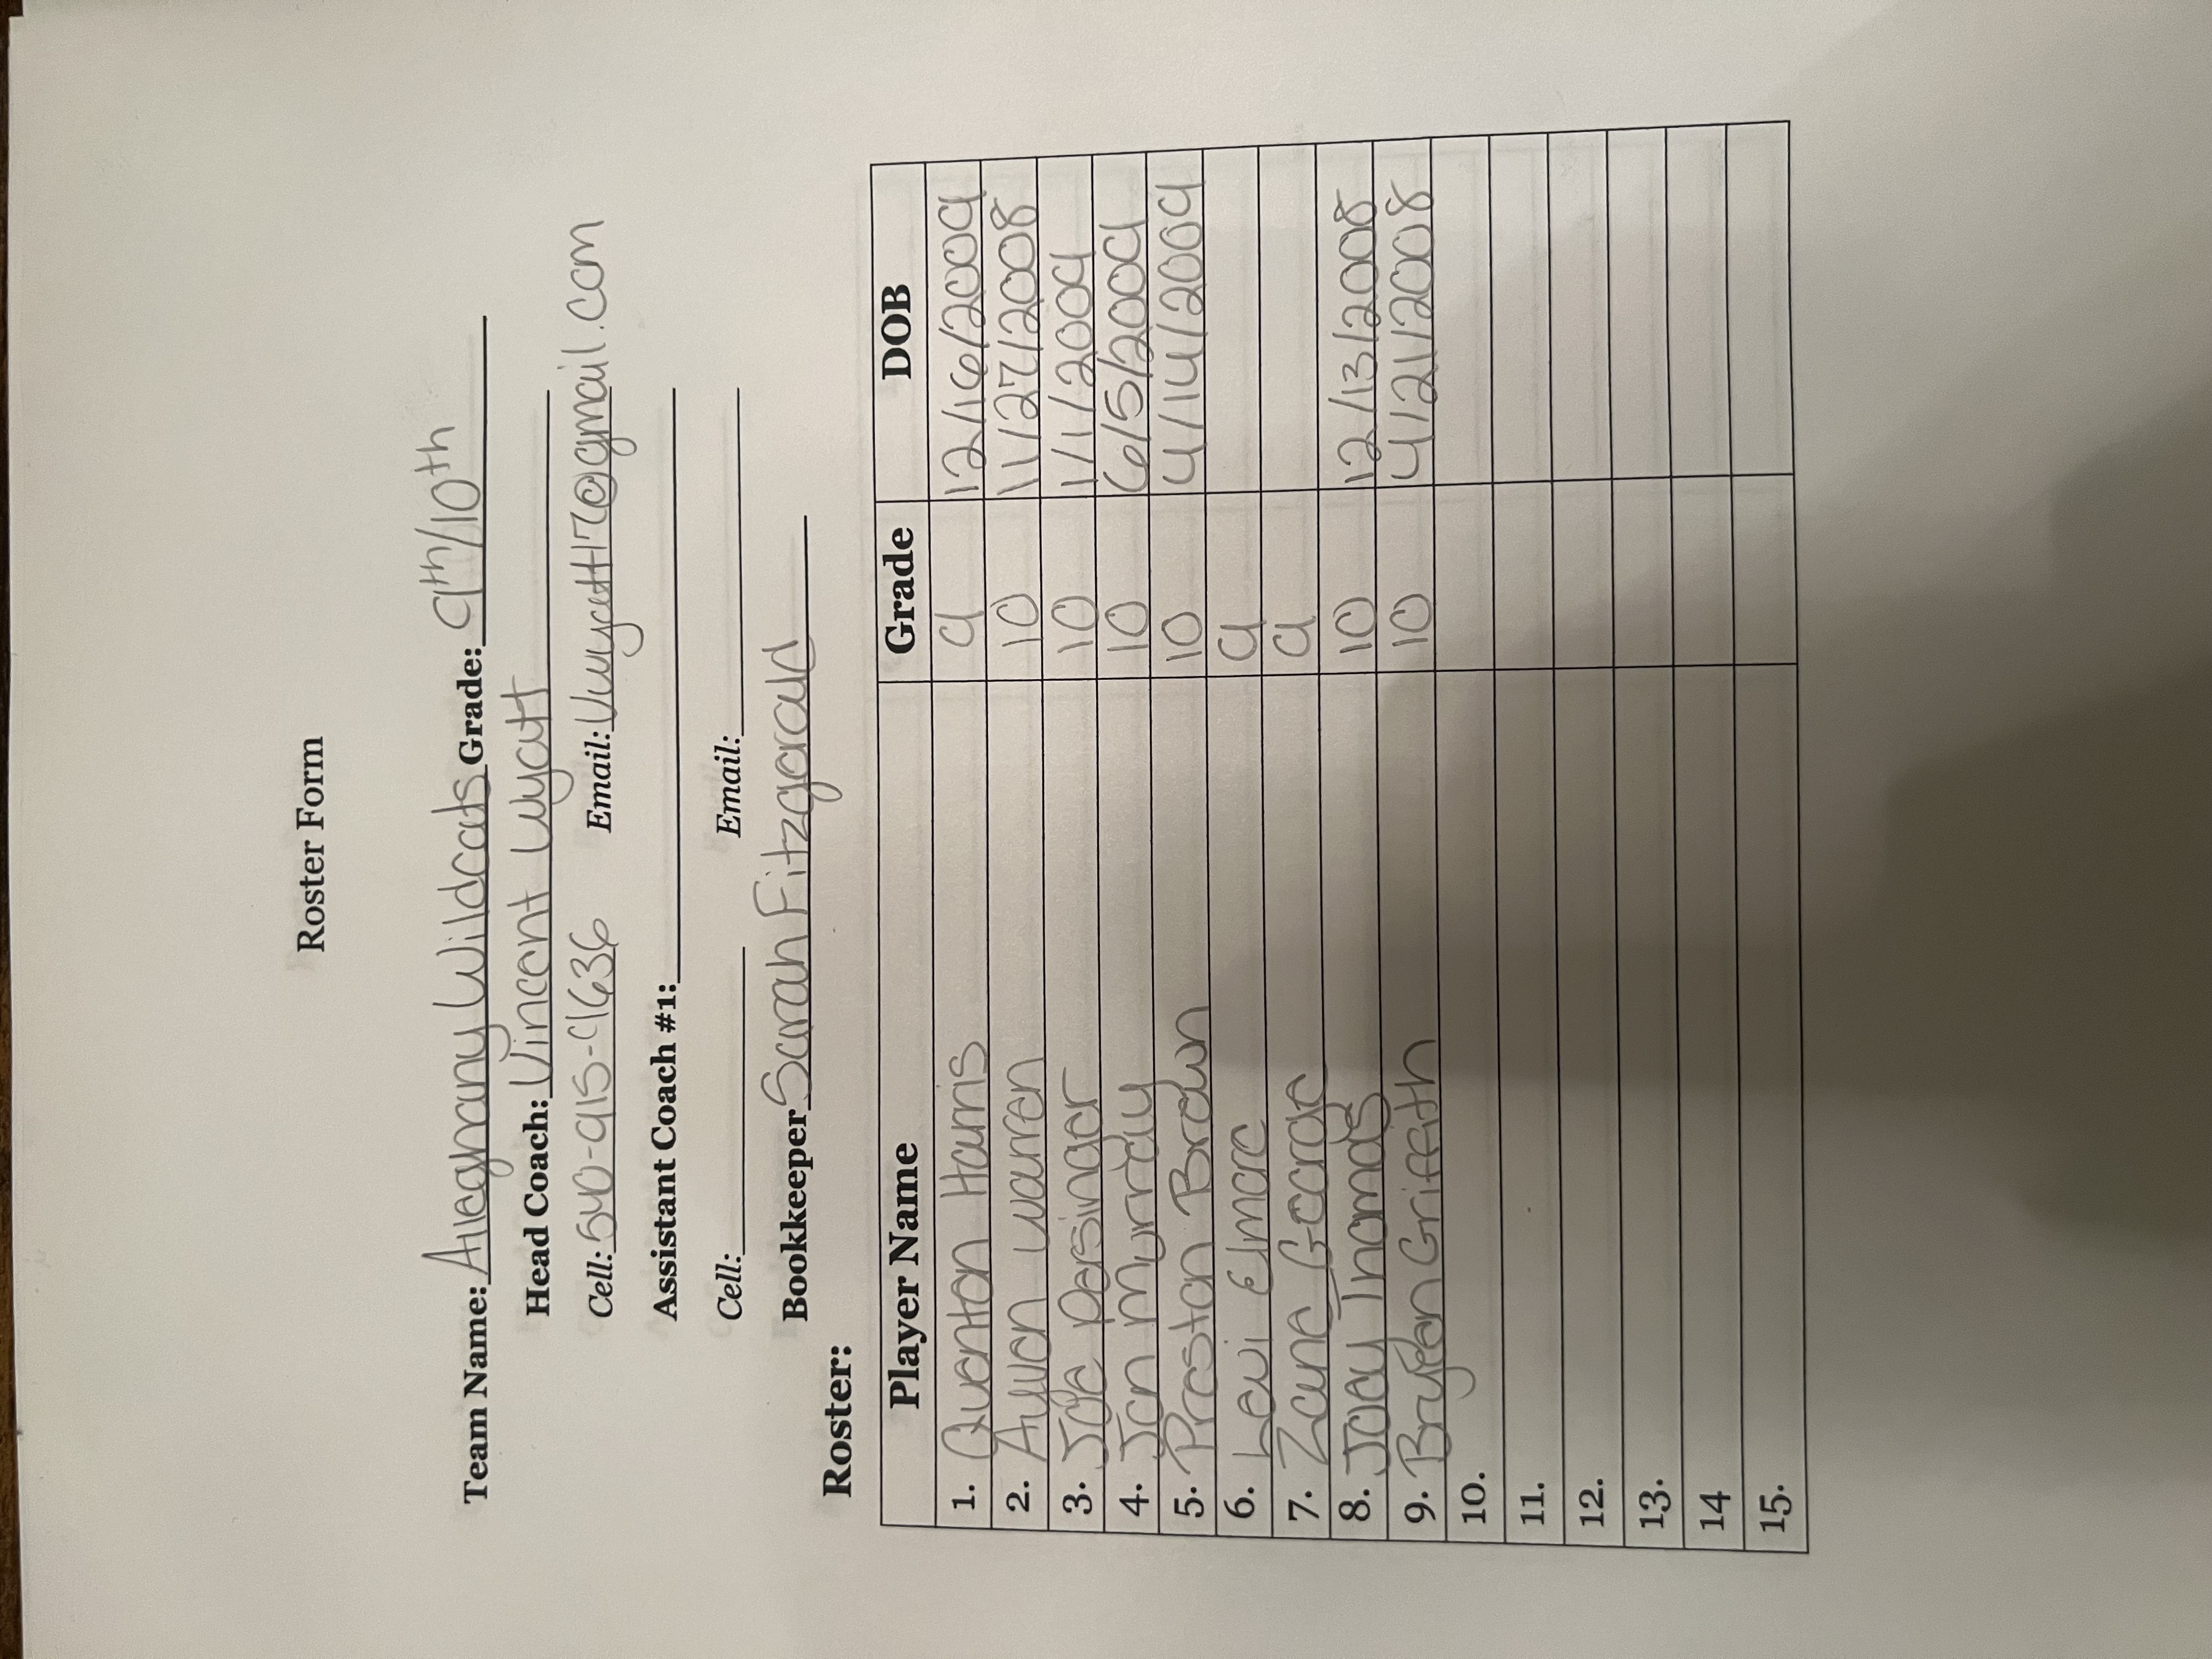 Roster Form
Team Name: Alleghany Wildcats Grade: 9th/10th
Head Coach: Vincent Wyatt
Cell: 540-915-9636 Email: Vwyatt17@gmail.com
Assistant Coach #1:
Cell: Email:
Bookkeeper Sarah Fitzgerald
Roster:
Player Name Grade DOB
1. Quenton Harris 9 12/16/2009
2. Warren 10 11/27/2008
3. Persinger 10 1/1/2009
4. Jon Mundy 10 6/5/2009
5. Preston Brown 10 4/14/2009
6. Levi Elmore 9
7. Zane George 9
8. Joey Thomas 10 12/13/2008
9. Griffith 10 4/21/2008
10.
11.
12.
13.
14
15.